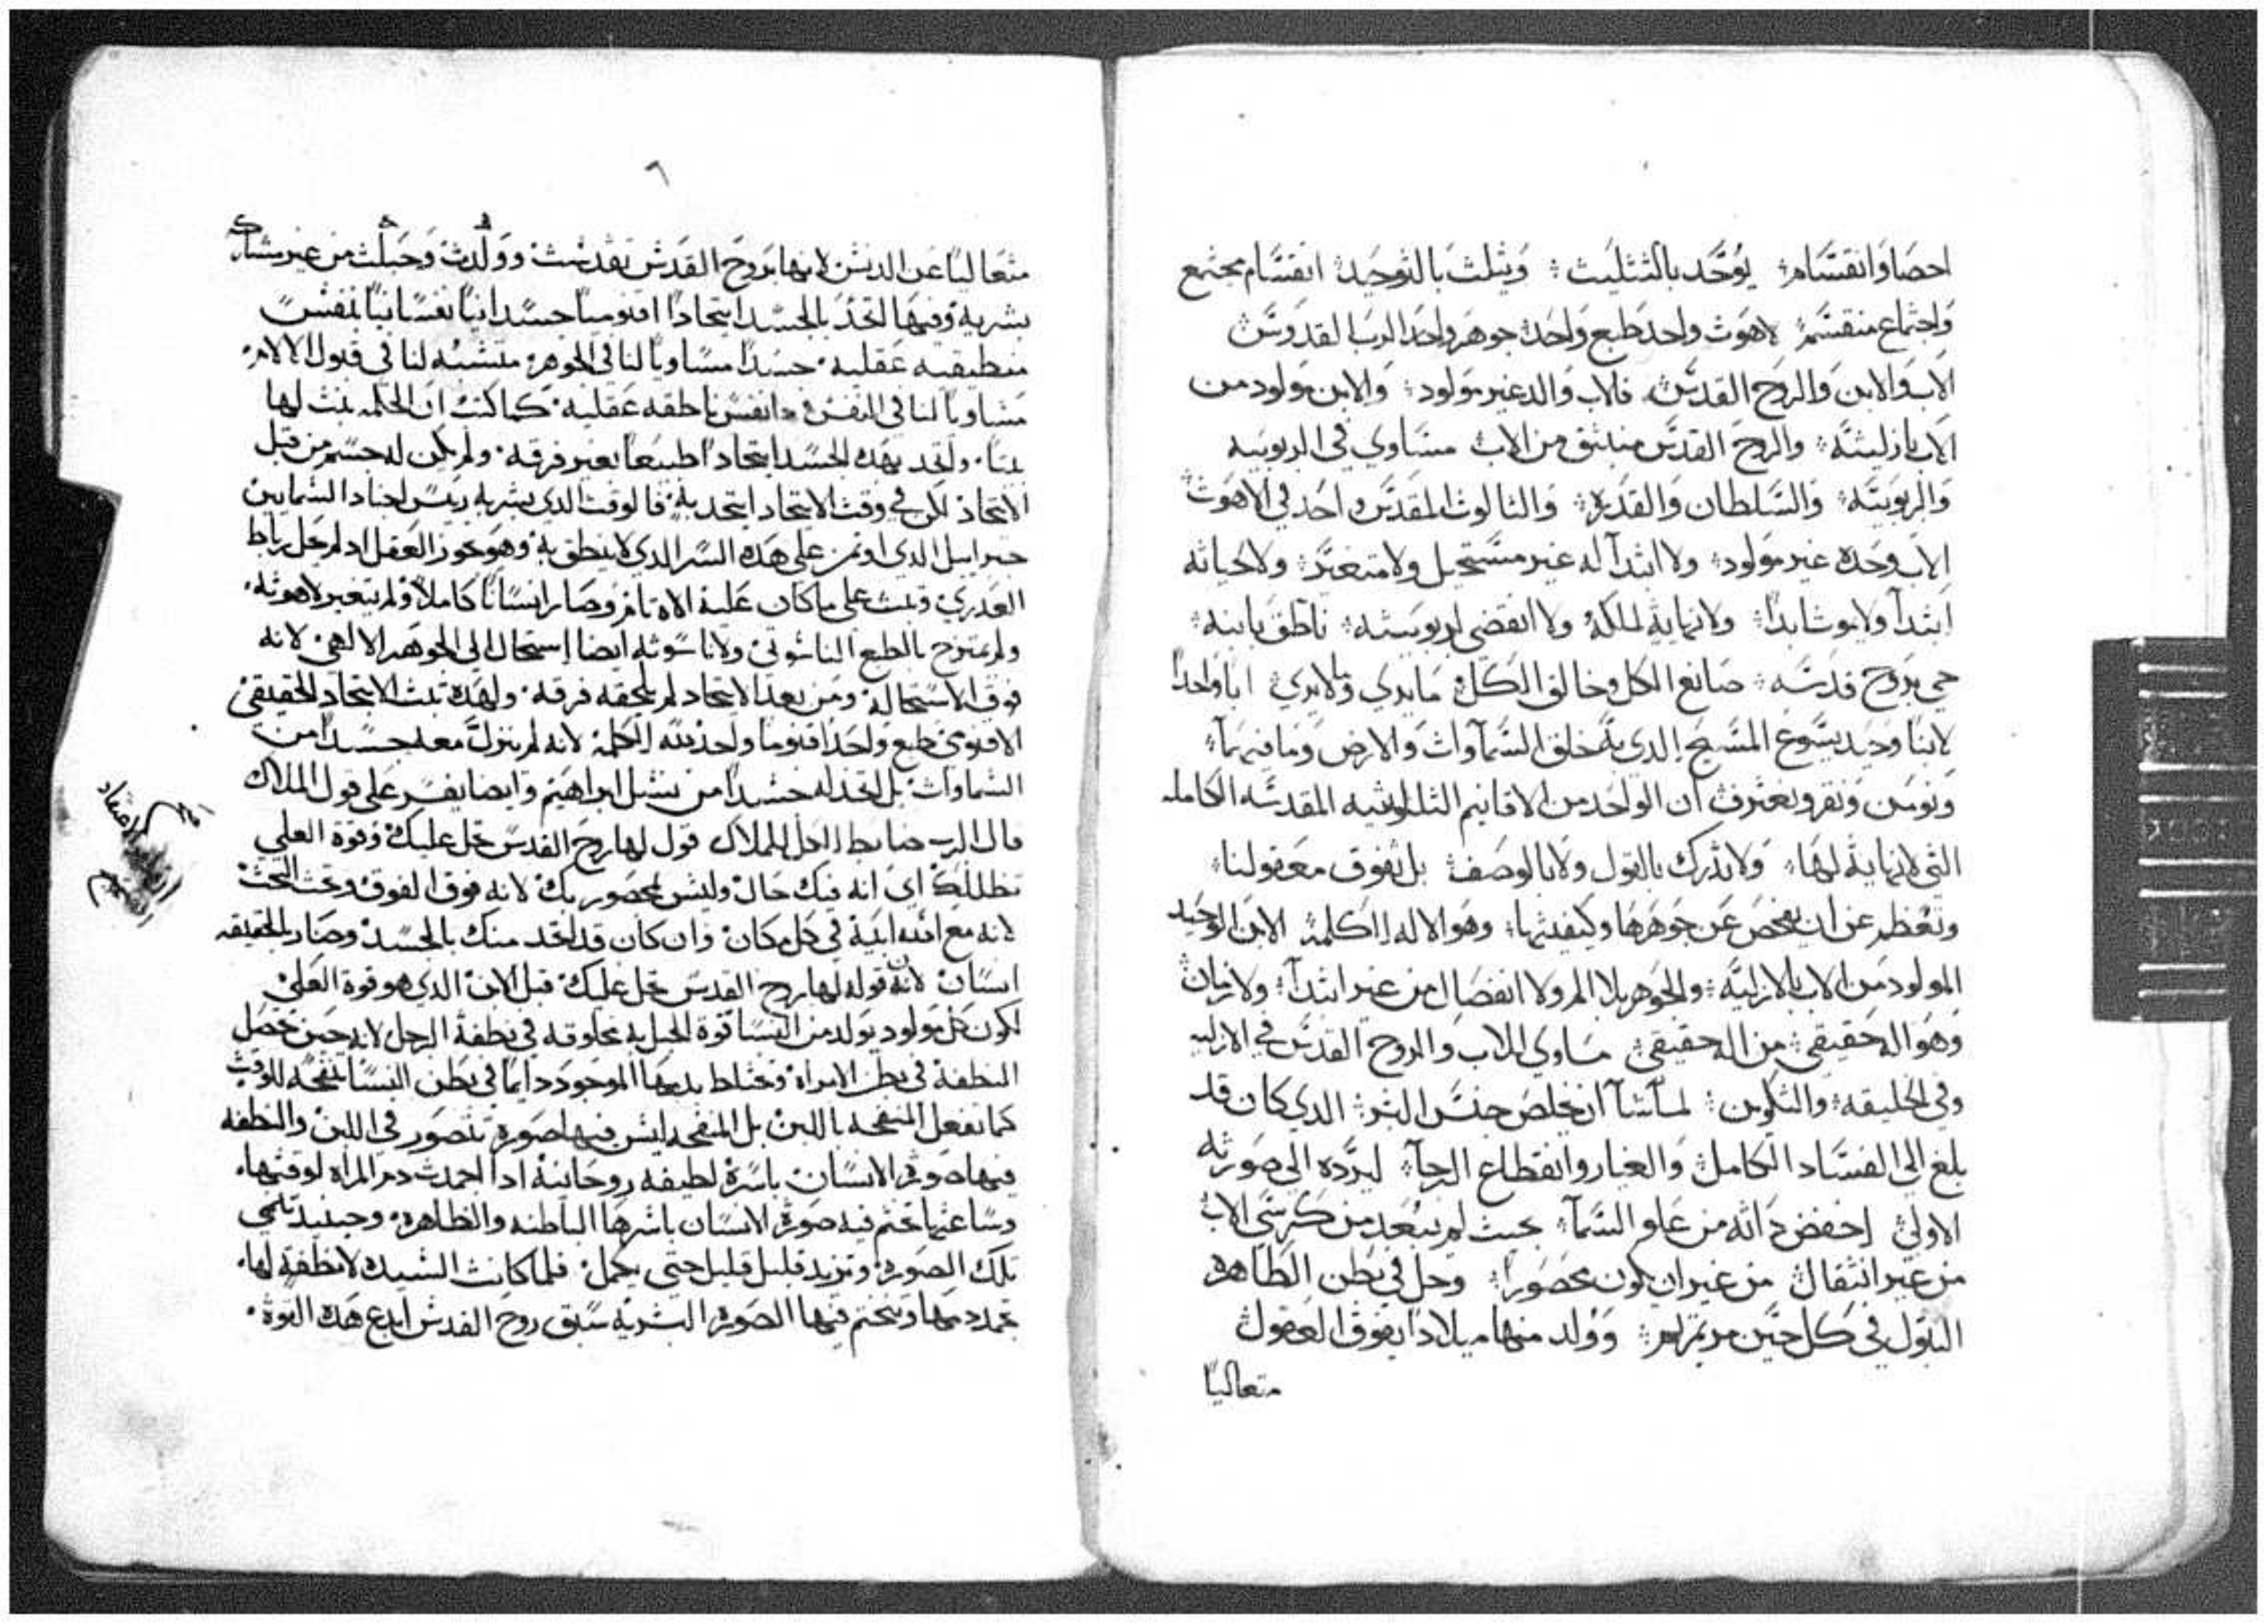 احصا وانقسام يوحد بالتثليث ويثلث بالتوحيد انقسام مجتمع
واجتماع منقسم لاهوت واحد طبع واحد جوهر واحد الرب القدوس
الاب والابن والروح القدس فالاب والد غير مولود والابن مولود من
الاب بازليته والروح القدس منبثق من الاب مساوي في الربوبيه
والربوبيه والسلطان والقدره والثالوث المقدس واحد في الاهوت
الاب وحده غير مولود ولا ابتدآ له غير مستحيل ولا متغير ولا لحياته
ابتدآ ولا يموت ابدا ولا نهاية لملكه ولا انقضي لربوبيته ناطق بابنه
حي بروح قدسه صانع الكل وخالق الكل ما يري وما لا يري ابا واحدا
لابنا وحيد يسوع المسيح الدي به خلق السمآوات والارض وما فيهمآ
ونومن ونقر ونعترف ان الواحد من الاقانيم الثالوثيه المقدسه الكامله
التي لا نهاية لها ولا تدرك بالقول ولا بالوصف بل تفوق معقولنا
وتعظم عن ان يفحص عن جوهرها وكيفيتها وهو الاله الكلمة الابن الوحيد
المولود من الاب بالازليه والجوهر بلا الم ولا انفصال من غير ابتدآ ولا زمان
وهو اله حقيقي من اله حقيقي مساوي للاب والروح القدس في الازليه
وفي الخليقه والتكوين لمآ شآ ان يخلص جنس البشر الدي كان قد
بلغ الي الفساد الكامل والغيار وانقطاع الرجآ ليرده الي صورته
الاولي اخفض داته من علو السمآ بحيث لم يبعد من كرسي الاب
من غير انتقال من غير ان يكون محصورا وحل في بطن الطاهره
البتول في كل حين مرتمريم وولد منها ميلادا يفوق العقول
متعاليا
٦
متعاليا عن الدنس لانها بروح القدس تقدست وولدت وحبلت من غير مشاركه
بشريه وفيها اتخد بالجسد اتحادا اقنوميا جسدانيا نفسانيا بنفس
منطيقيه عقليه جسدا مساويا لنا في الجوهر متشبه لنا في قبول الالام
مساويا لنا في النفس دا نفس ناطقه عقليه كما كتب ان الكلمه
واتحد بهده الجسد اتحادا طبيعا بغير فرقه ولم يكن له جسم من قبل
الاتحاد لكن في وقت الاتحاد اتحد به فالوقت الدي بشر به ريس اجناد السمايين
جبراييل الدي اوتمن علي هده السر الدي لا ينطق به وهو يحوز العقل
علي ما كان عليه وصار انسانا كاملا ولم يتغير لاهوته
ولم يمتزج بالطبع الناسوتي ولا ناسوته ايضا استحال الي الجوهر الالهي لانه
فوق الاستحاله ومن بعد الاتحاد لم يلحقه فرقه ولهده تمت الاتحاد الحقيقي
الاقنومي طبع واحد اقنوما واحد لله الكلمه لانه لم ينزل معه جسدا من
السماوات بل اتخد له جسدا من نسل ابراهيم وايضا يفسر علي قول الملاك
قال الرب ضابط الكل للملاك قول لها روح القدس تحل عليك وقوة العلي
تظللك اي انه فيك حال وليس محصور بك لانه فوق الفوق وتحت التحت
لانه مع ابيه في كل مكان وان كان قد اتحد منك بالجسد وصار بالحقيقه
انسان لان قوله لها روح القدس تحل عليك قبل الابن الدي هو قوة العلي
لكون كل مولود يولد من النسا قوة الحبل به مخلوقه في نطفة الرجل لانه حين تحصل
النطفه في بطن الامراه وتختلط بدمها الموجود دايما في بطن النسا للوقت
كما تفعل المنفحه باللبن بل المنفحه ليس فيها صوره تتصور في اللبن والنطفه
فيها صورة الانسان باسره لطيفه روحانيه ادا جمدت دم المراه لوقتها
وساعتها تختم فيه صورة الانسان باسرها الباطنه والظاهره وحينيد تنمي
تلك الصوره وتزيد قليل قليل حتي يكمل فلما كانت السيده لا نطفة لها
تجمد دمها وتختم فيها الصوره البشريه سبق روح القدس ابدع هده القوة
اعتقاد